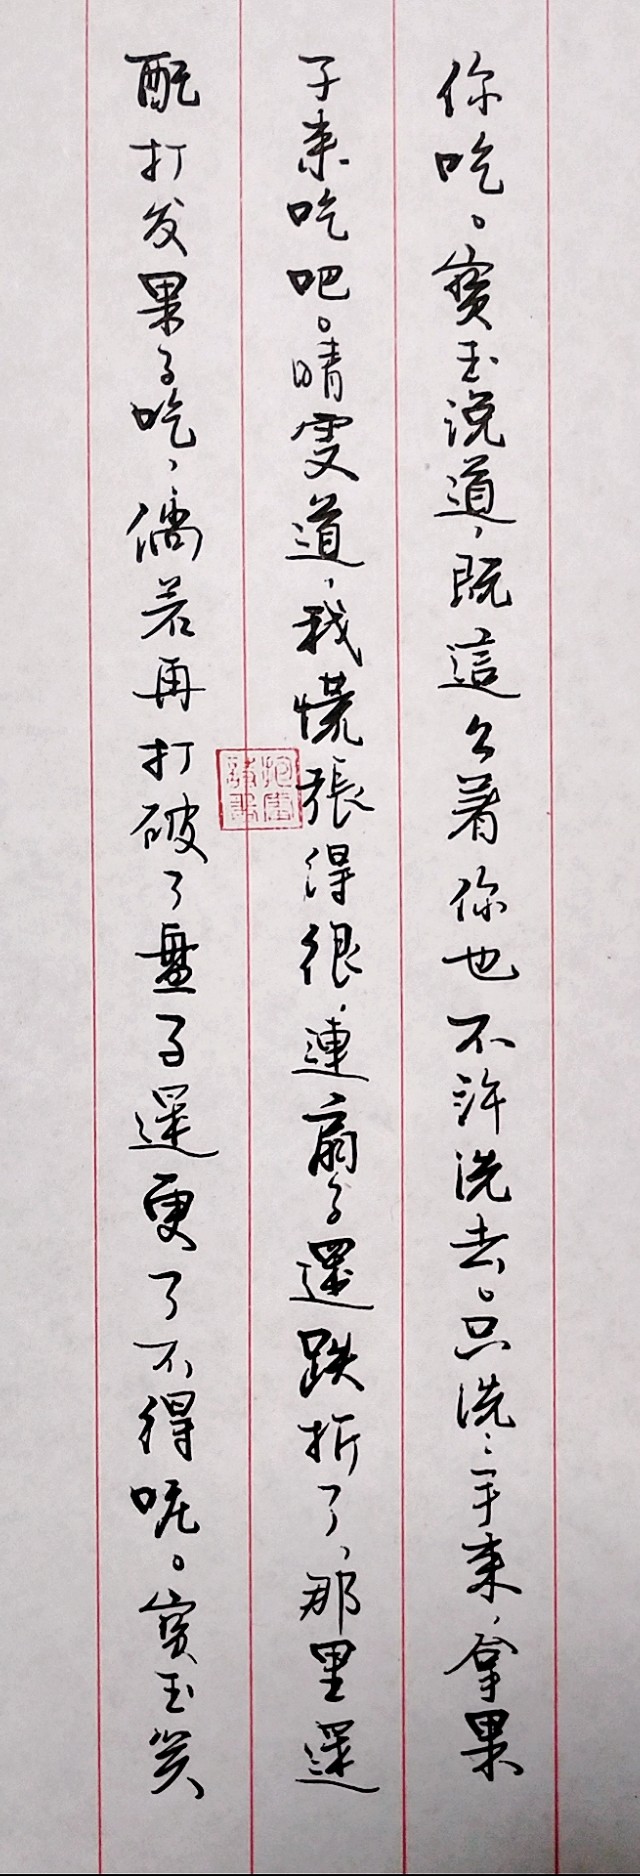 你吃。寶玉说道，既這么着你也不许洗去。只洗洗手来，拿果
子来吃吧。晴雯道，我慌張得很，連扇子還跌折了，那里還
配打发果子吃，倘若再打破了盤子還更了不得呢。寶玉笑